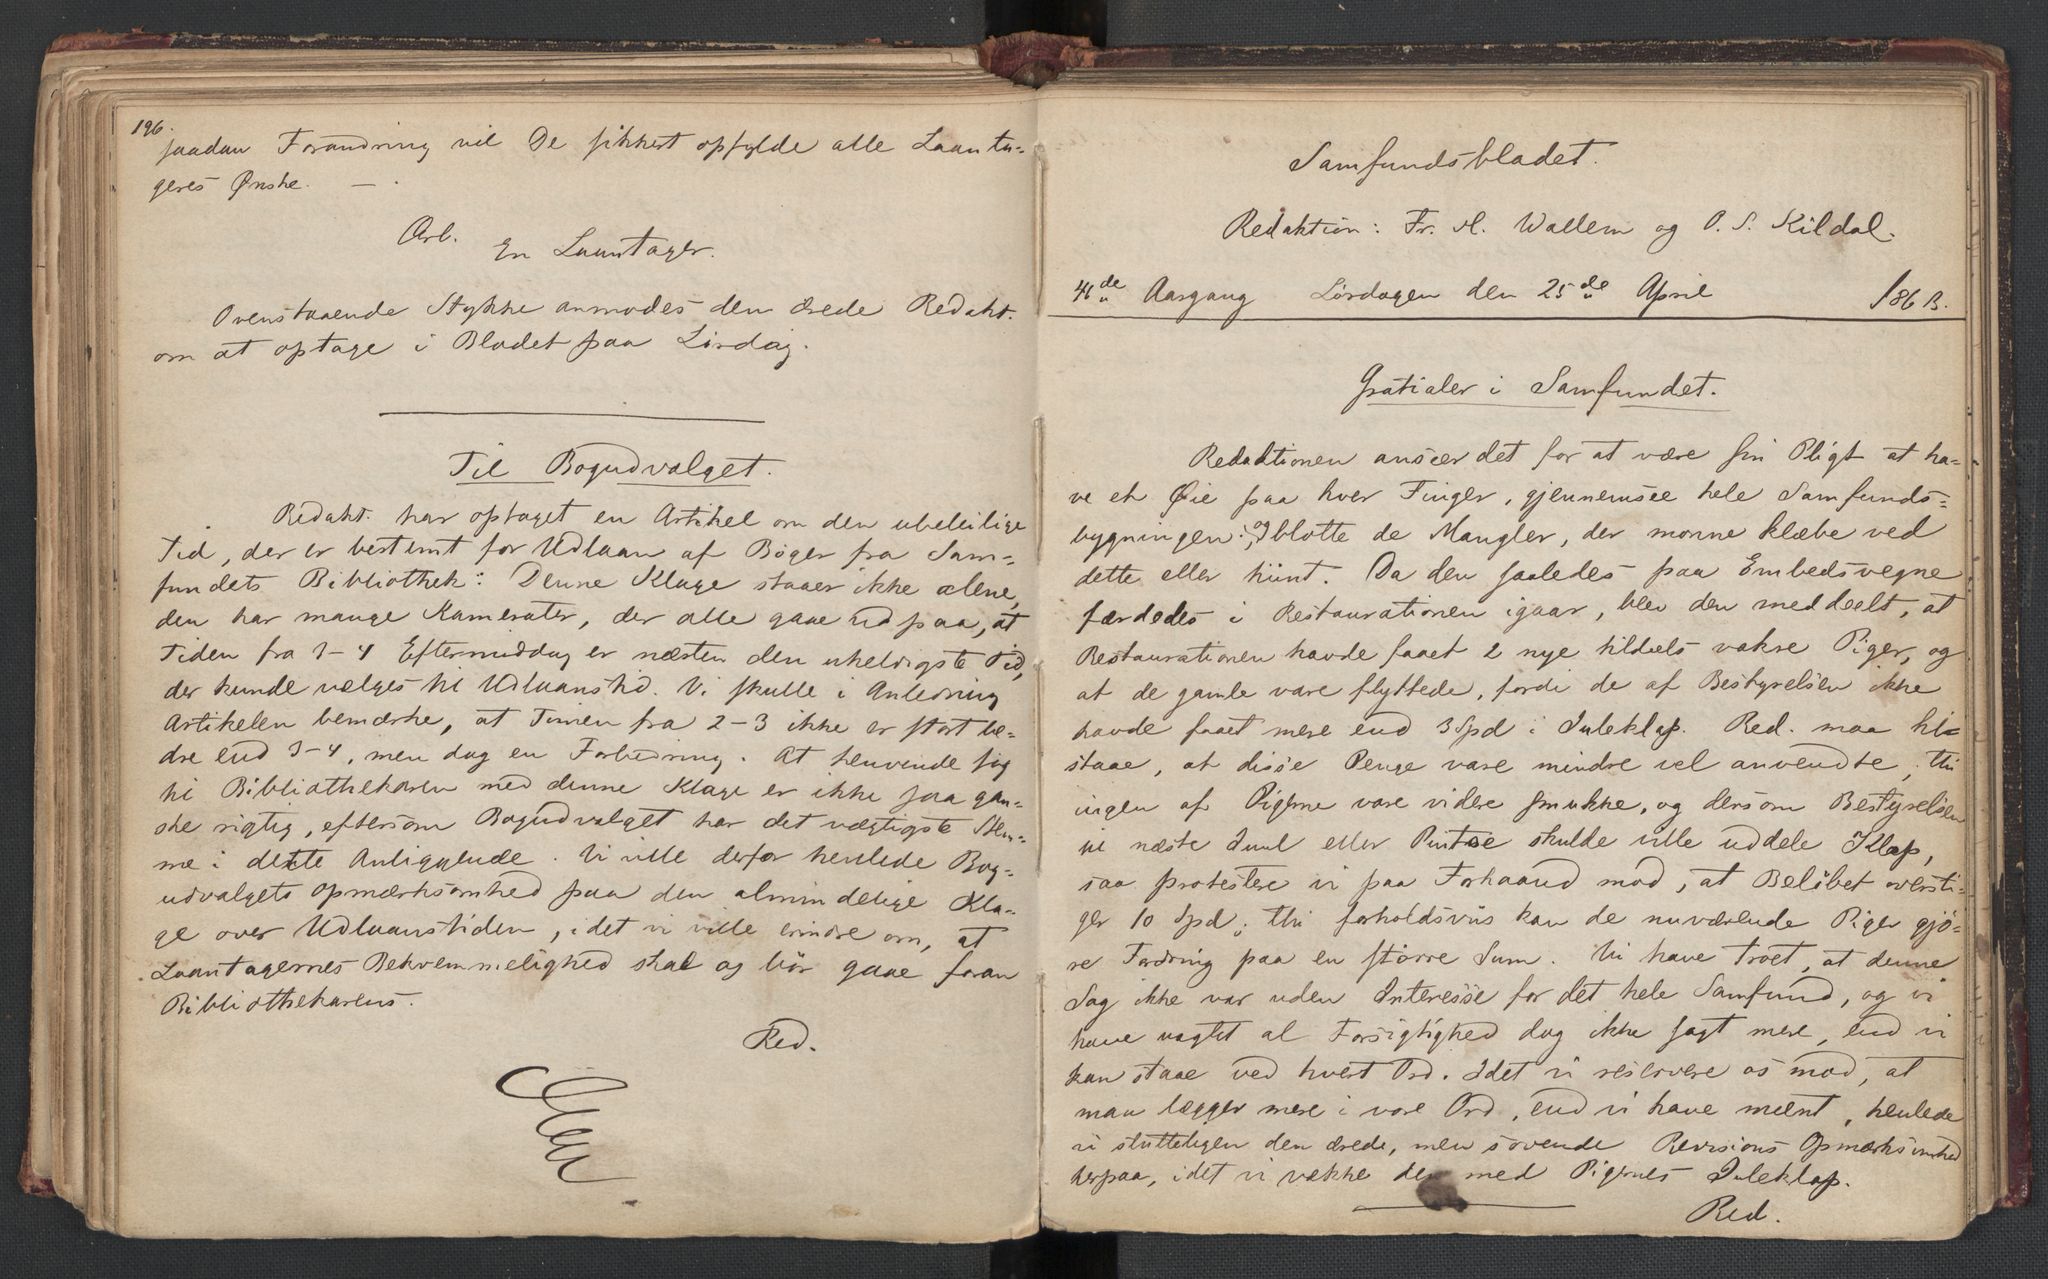 196.
saadan Forandring vil De sikkert opfylde alle Laanta-
geres Ønske. —
Arb.
En Laantager.
Ovenstaaende Stykke anmodes den ærede Redakt.
om at optage i Bladet paa Lørdag.
Til Bogudvalget.
Redakt. har optaget en Artikel om den ubeleilige
Tid, der er bestemt for Udlaan af Bøger fra Sam-
fundets Bibliothek: Denne Klage staaer ikke alene,
den har mange Kamerater, der alle gaae ud paa, at
Tiden fra 3-4 Eftermiddag er næsten den uheldigste Tid,
der kunde vælges til Udlaanstid. Vi skulle i Anledning
Artikelen bemærke, at Timen fra 2-3 ikke er stort be-
dre end 3-4, men dog en Forbedring. At henvende sig
til Bibliothekaren med denne Klage er ikke saa gan-
ske rigtig, eftersom Bogudvalget har det vægtigste Stem-
me i dette Anliggende. Vi ville derfor henlede Bog-
udvalgets Opmærksomhed paa den almindelige Kla-
ge over Udlaanstiden, idet vi ville erindre om, at
Laantagernes Bekvemmelighed skal og bør gaae foran
Bibliothekarens.
Red.
Samfundsbladet.
Redaktion: Fr. M. Wallem og O. S. Kildal.
4de Aargang Lørdagen den 25de April 1863.
Gratialer i Samfundet.
Redaktionen anseer det for at være sin Pligt at ha-
ve et Øie paa hver Finger, gjennemsee hele Samfunds-
bygningen, og blotte de Mangler, der monne klæbe ved
dette eller hiint. Da den saaledes paa Embedsvegne
færdedes i Restaurationen igaar, blev den meddeelt, at
Restaurationen havde faaet 2 nye tildels vakre Piger, og
at de gamle vare flyttede, fordi de af Bestyrelsen ikke
havde faaet mere end 3 Spd i Juleklap. Red. maa til-
staae, at disse Penge vare mindre vel anvendte, thi
ingen af Pigerne vare videre smukke, og dersom Bestyrelsen
til næste Juul eller Pintse skulde ville uddele Klap,
saa protestere vi paa Forhaand mod, at Beløbet oversti-
ger 10 Spd; thi forholdsviis kan de nuværende Piger gjø-
re Fordring paa en større Sum. Vi have troet, at denne
Sag ikke var uden Interesse for det hele Samfund, og vi
have vagtet al Forsigtighed dog ikke sagt mere, end vi
kan staae ved hvert Ord. Idet vi reservere os mod, at
man lægger mere i vore Ord, end vi have meent, henlede
vi slutteligen den ærede, men sovende Revisions Opmærksomhed
herpaa, idet vi vække den med Pigernes Juleklap.
Red.